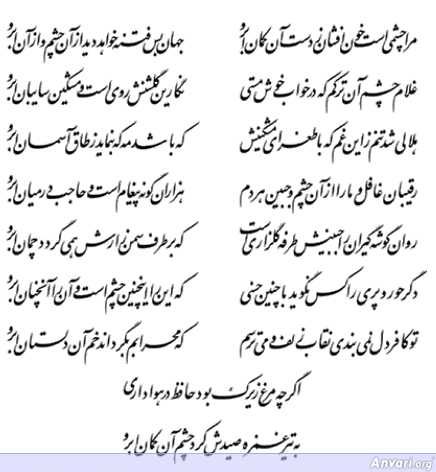 مرا چشمی است خون افشان ز دست آن کمان ابرو جهان بس فتنه خواهد دید از آن چشم و از آن ابرو
غلام چشم آن ترکم که در خواب خوش مستی نگارین گلشنش روی است و مشکین سایبان ابرو
هلالی شد تنم زاین غم که با طغرای مشکینش که باشد مه که بنماید ز طاق آسمان ابرو
رقیبان غافل و ما را از آن چشم و جبین هر دم هزاران گونه پیغام است و حاجب در میان ابرو
روان گوشه گیران را جبینش طرفه گلزاری است که بر طرف سمن زارش همی گردد چمان ابرو
دگر حور و پری را کس نگوید با چنین حسنی که این را اینچنین چشم است و آن را آنچنان ابرو
تو کافر دل نمی بندی نقاب زلف و می ترسم که محرابم بگرداند خم آن دلستان ابرو
اگر چه مرغ زیرک بود حافظ در هواداری
به تیر غمزه صیدش کرد چشم آن کمان ابرو
Anvari.org